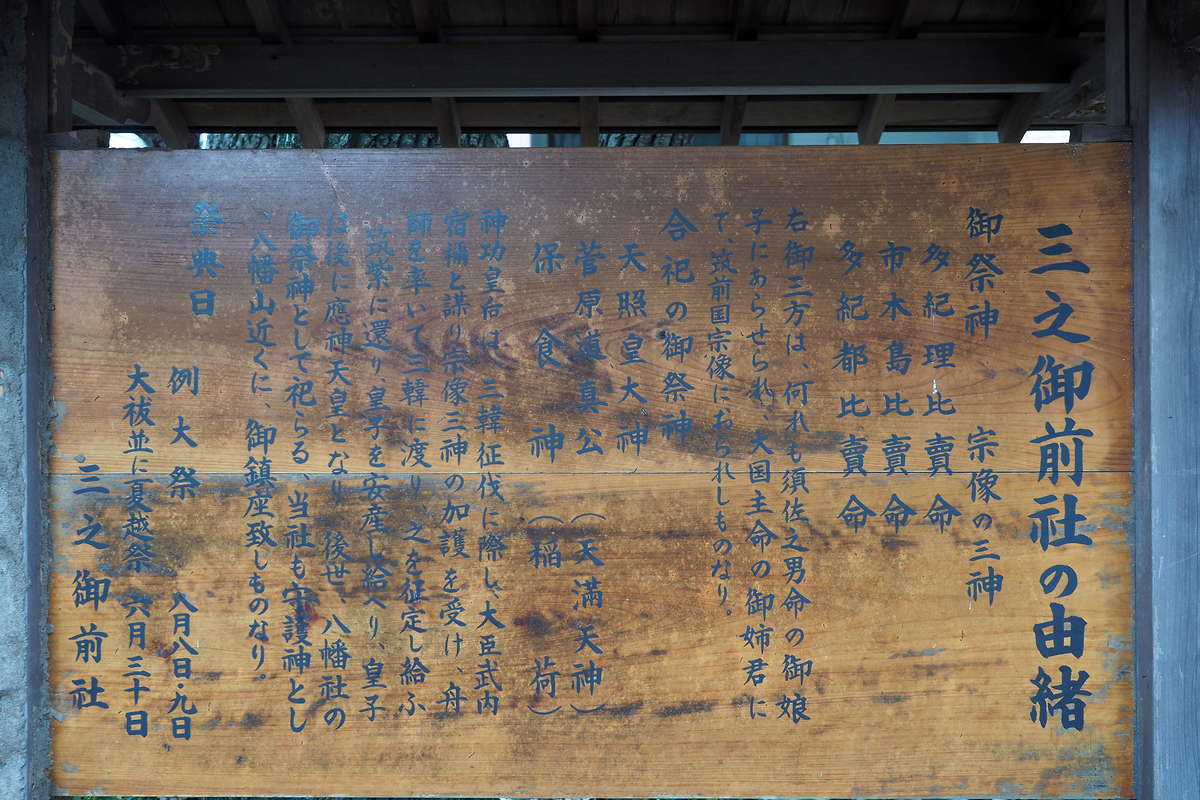 三之御前社の由緒
御祭神、宗像の三神
多紀理比賣命
市木島比賣命
多紀都比賣命
右御三方は、何れも須佐之男命の御娘
子にあらせられ、大国主命の御姉君に
て、筑前国宗像におられしものなり。
合祀の御祭神
天照皇大神
菅原道真公（天満天神）
保食神（稲荷）
神功皇后は、三韓征伐に際し、大臣武内
宿禰と謀り宗像三神の加護を受け、舟
師を率いて三韓に渡り、之を征定し給ふ
、筑紫に還り、皇子を安産し給へり、皇子
は後に應神天皇となり、後世、八幡社の
御祭神として祀らる、当社も守護神とし
、八幡山近くに、御鎮座致しものなり。
祭典日
例大祭 八月八日・九日
大祓並に夏越祭 六月三十日
三之御前社